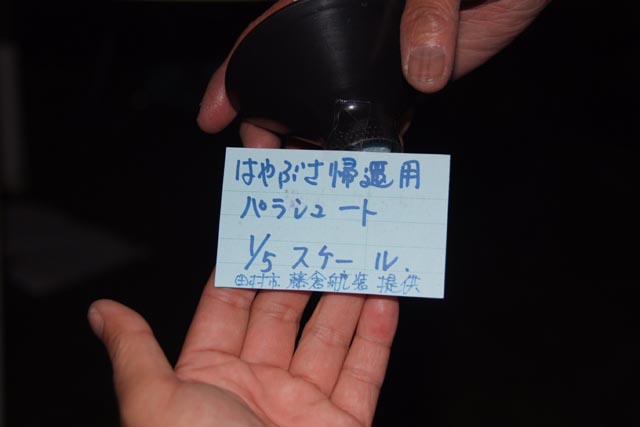 はやぶさ帰還用
パラシュート
1/5 スケール.
田村市 藤倉航装 提供